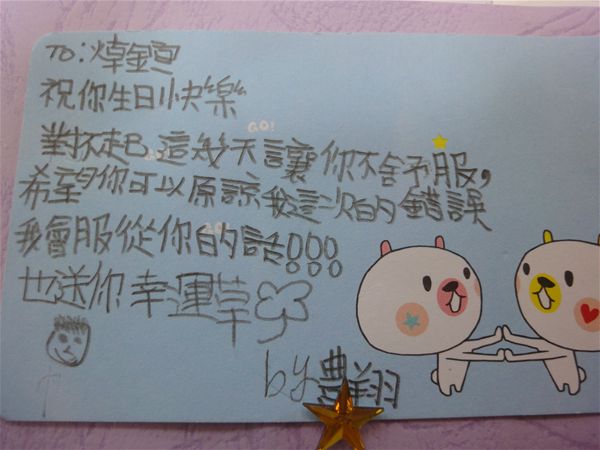 To:焯鋆
祝你生日快樂
GO!
對不起B這幾天讓你不舍予服,
希望你可以原諒我這次的錯誤
我會服從你的話!!!
也送你幸運草
by豊翔